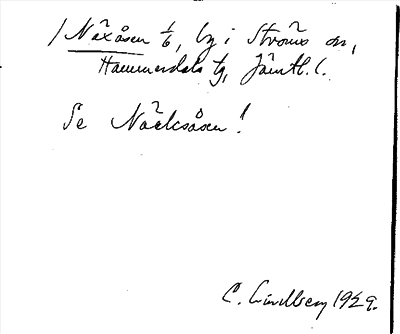 / Näxåsen 1/6, by i Ströms sn,
Hammerdals tg, Jämtl. l.
Se Näcksåsen!
C. Lindberg 1929.